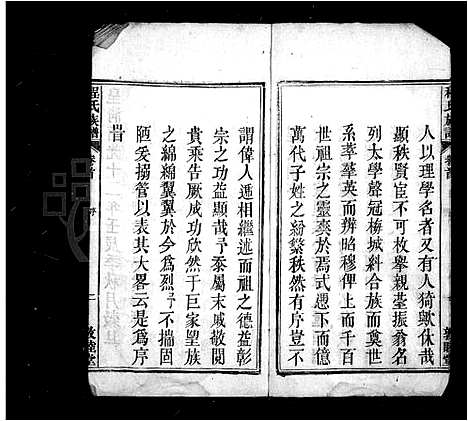 程氏族譜
卷首
人以理學名者又有人猗歟休哉
顯秩賢臣不可枚舉親臺振翁名
列太學聲冠梅城糾合族而奠世
系萃華英而辨昭穆俾上而千百
世祖宗之靈爽於焉式憑下而億
萬代子姓之紛繁秩然有序豈不
謂偉人遞相繼述而祖之德益彰
宗之功益顯哉予忝屬末戚敬閱
貴乘告厥成功欣然于巨家望族
之綿綿翼翼於今為烈予不揣固
陋爰搦管以表其大畧云是為序
旹
程氏族譜
卷首
序
敦睦堂